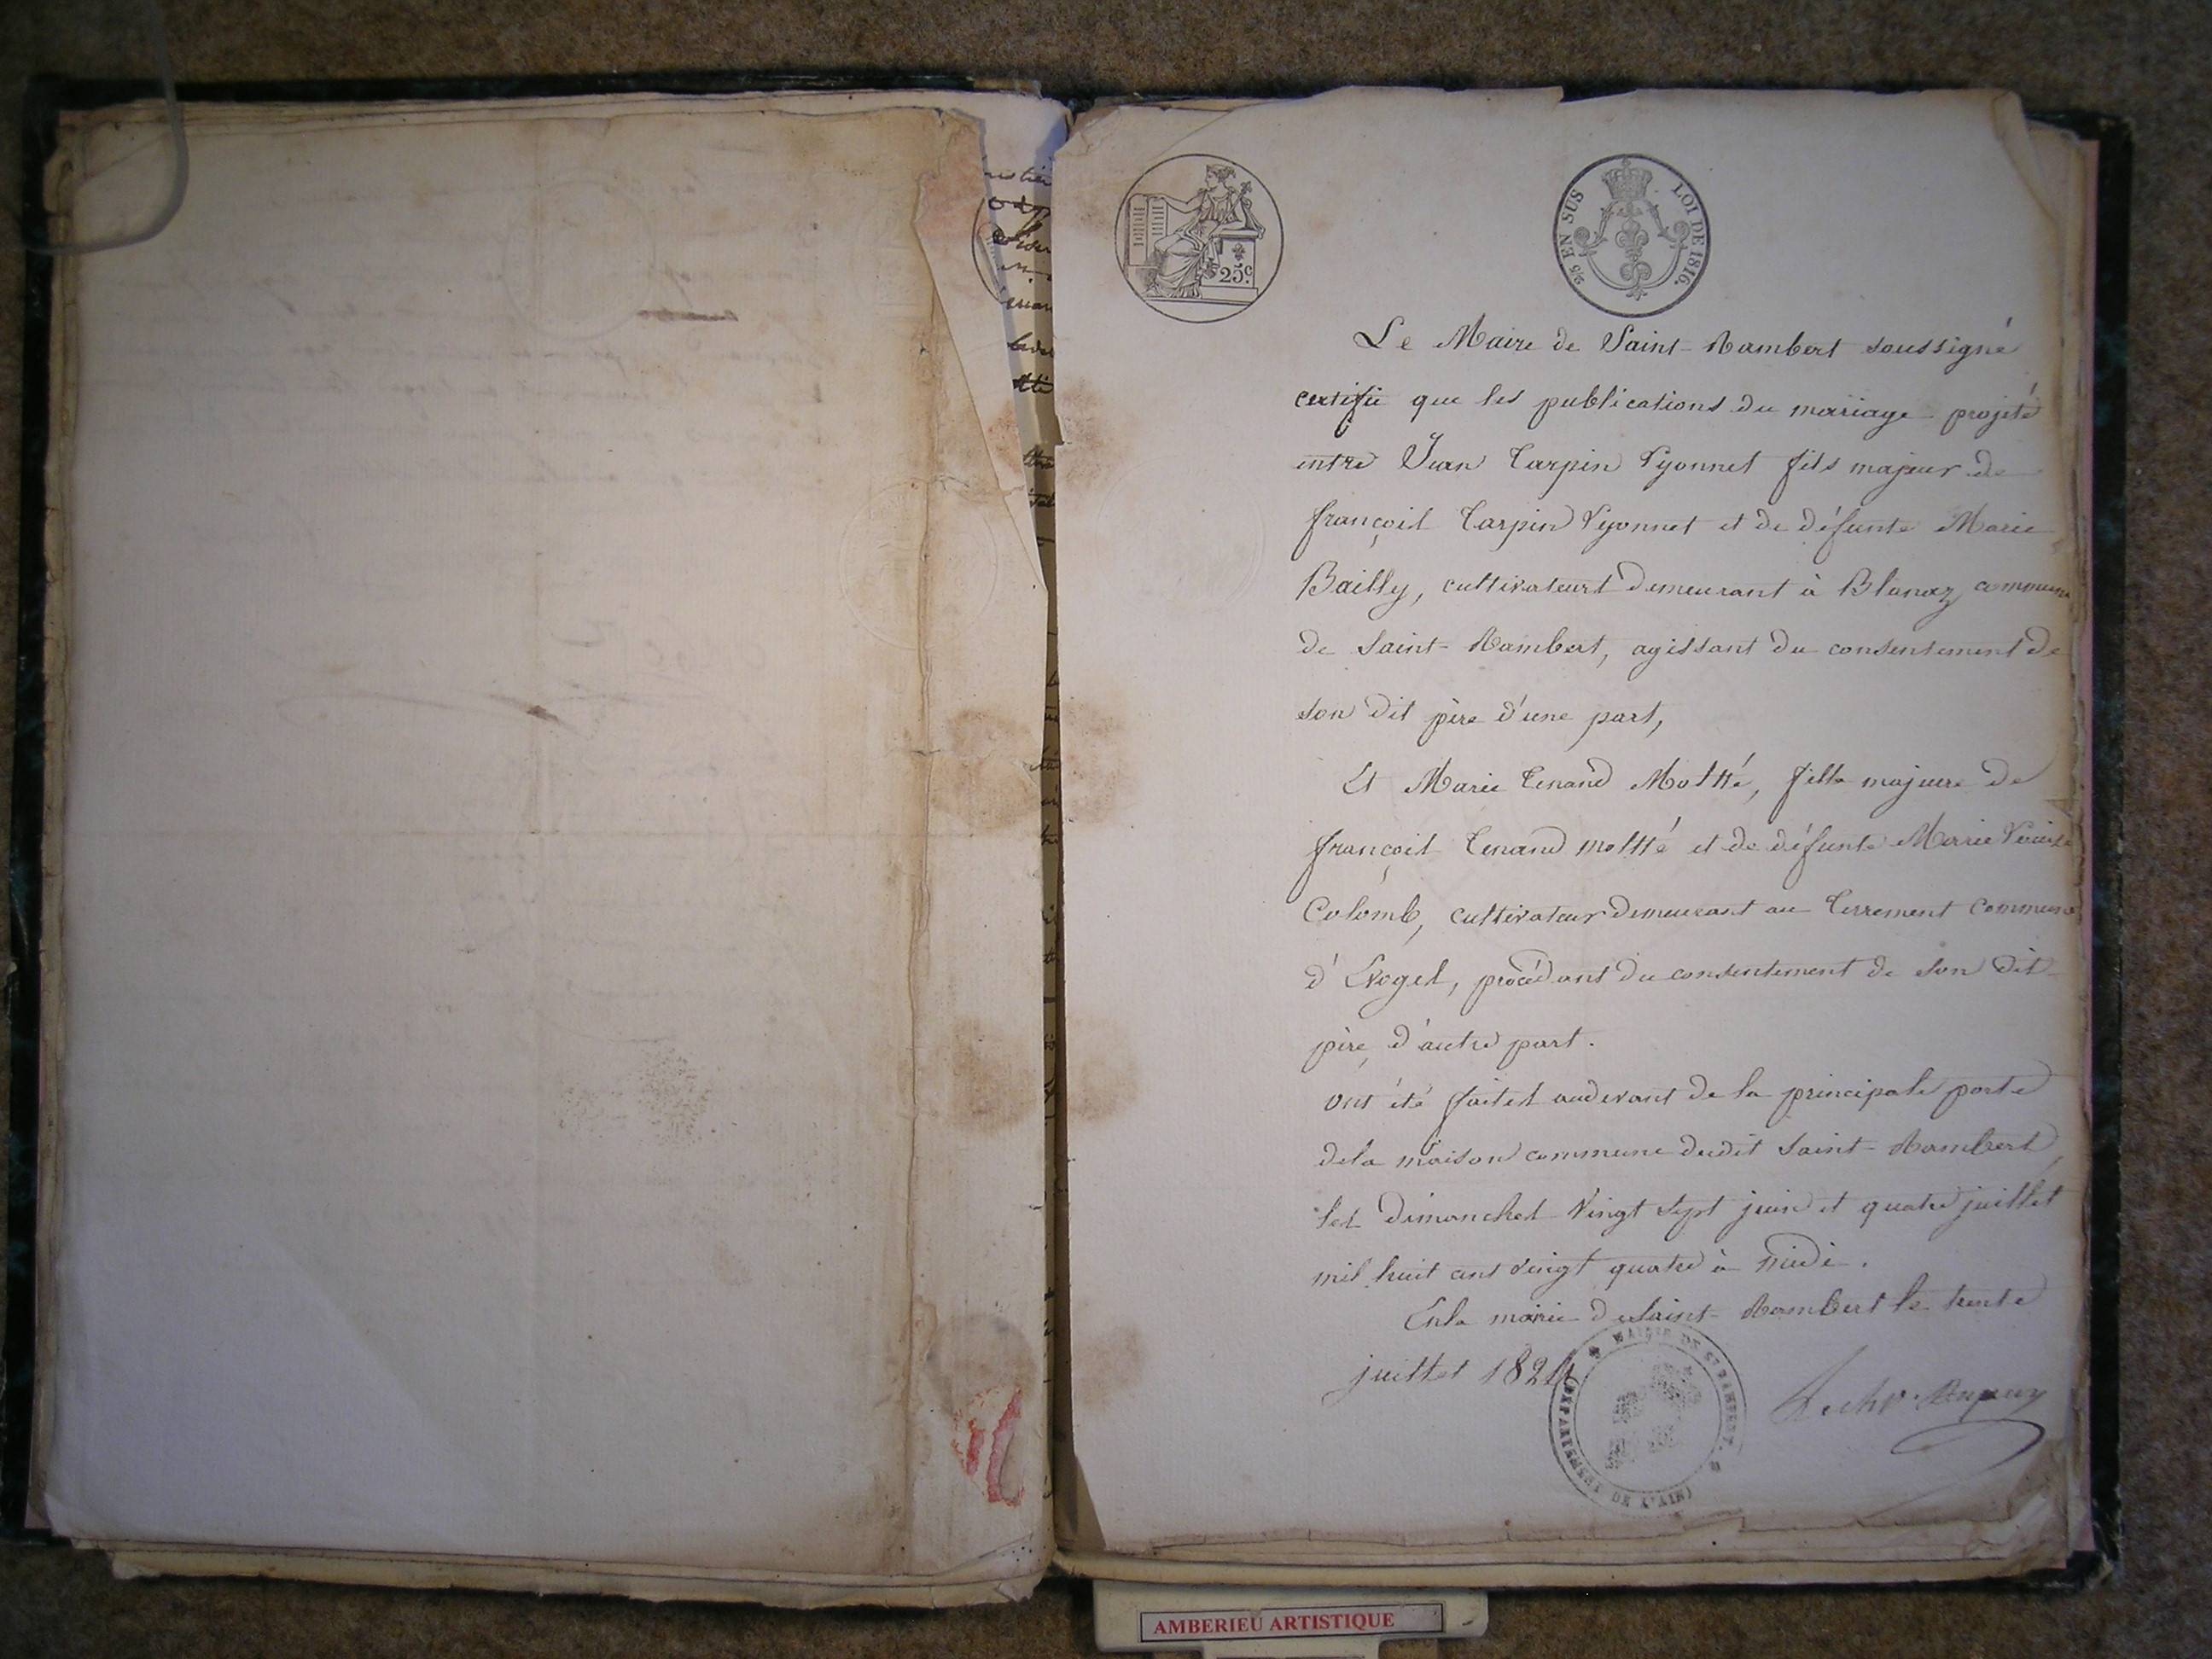 25.c
2/5 EN SUS LOI DE 1816.
Le Maire de Saint-Rambert soussigné
certifie que les publications du mariage projeté
entre Jean Tarpin Lyonnet fils majeur de
françois Tarpin Lyonnet et de défunte Marie
Bailly, cultivateurs demeurant à Blanaz commune
de Saint-Rambert, agissant du consentement de
son dit père d'une part,
Et Marie Tenand Motté, fille majeure de
françois Tenand motté et de défunte Marie
Colomb, cultivateur demeurant au Terrement commune
d'Evoges, procédant du consentement de son dit
père d'autre part.
ont été faites audevant de la principale porte
dela maison commune dudit Saint-Rambert
les dimanches Vingt Sept juin et quatre juillet
mil huit cent vingt quatre à midi.
Enla mairie de Saint-Rambert le trente
juillet 1824
MAIRIE DE ST RAMBERT.
(DÉPARTEMENT DE L'AIN)
Dupuy
AMBERIEU ARTISTIQUE